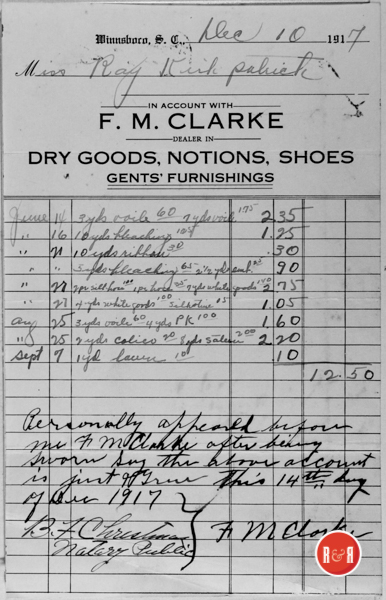 Winnsboro, S. C., Dec 10 1917
Miss Ray Kirkpatrick
IN ACCOUNT WITH
F. M. CLARKE
DEALER IN
DRY GOODS, NOTIONS, SHOES
GENTS' FURNISHINGS
June 14 3 yds voile 60 7 yds voile 175 2 35
" 16 10 yds bleaching 1 25
" 21 10 yds ribbon 30 .30
" " 5 yds bleaching 65 2 1/2 yds 90
" 21 2 pr silk hose 1 pr hose 7 yds white goods 2 75
" 21 4 yds white goods 100 silkoline 05 1.05
Aug 25 3 yds voile 60 4 yds PK 100 1.60
" 25 2 yds calico 20 8 yds sateen 200 2 20
Sept 7 1 yd lawn 10 10
12.50
Personally appeared before
me F M Clarke after being
sworn say the above account
is just & True this 14th day
of Dec 1917
Notary Public F M Clarke
R&R